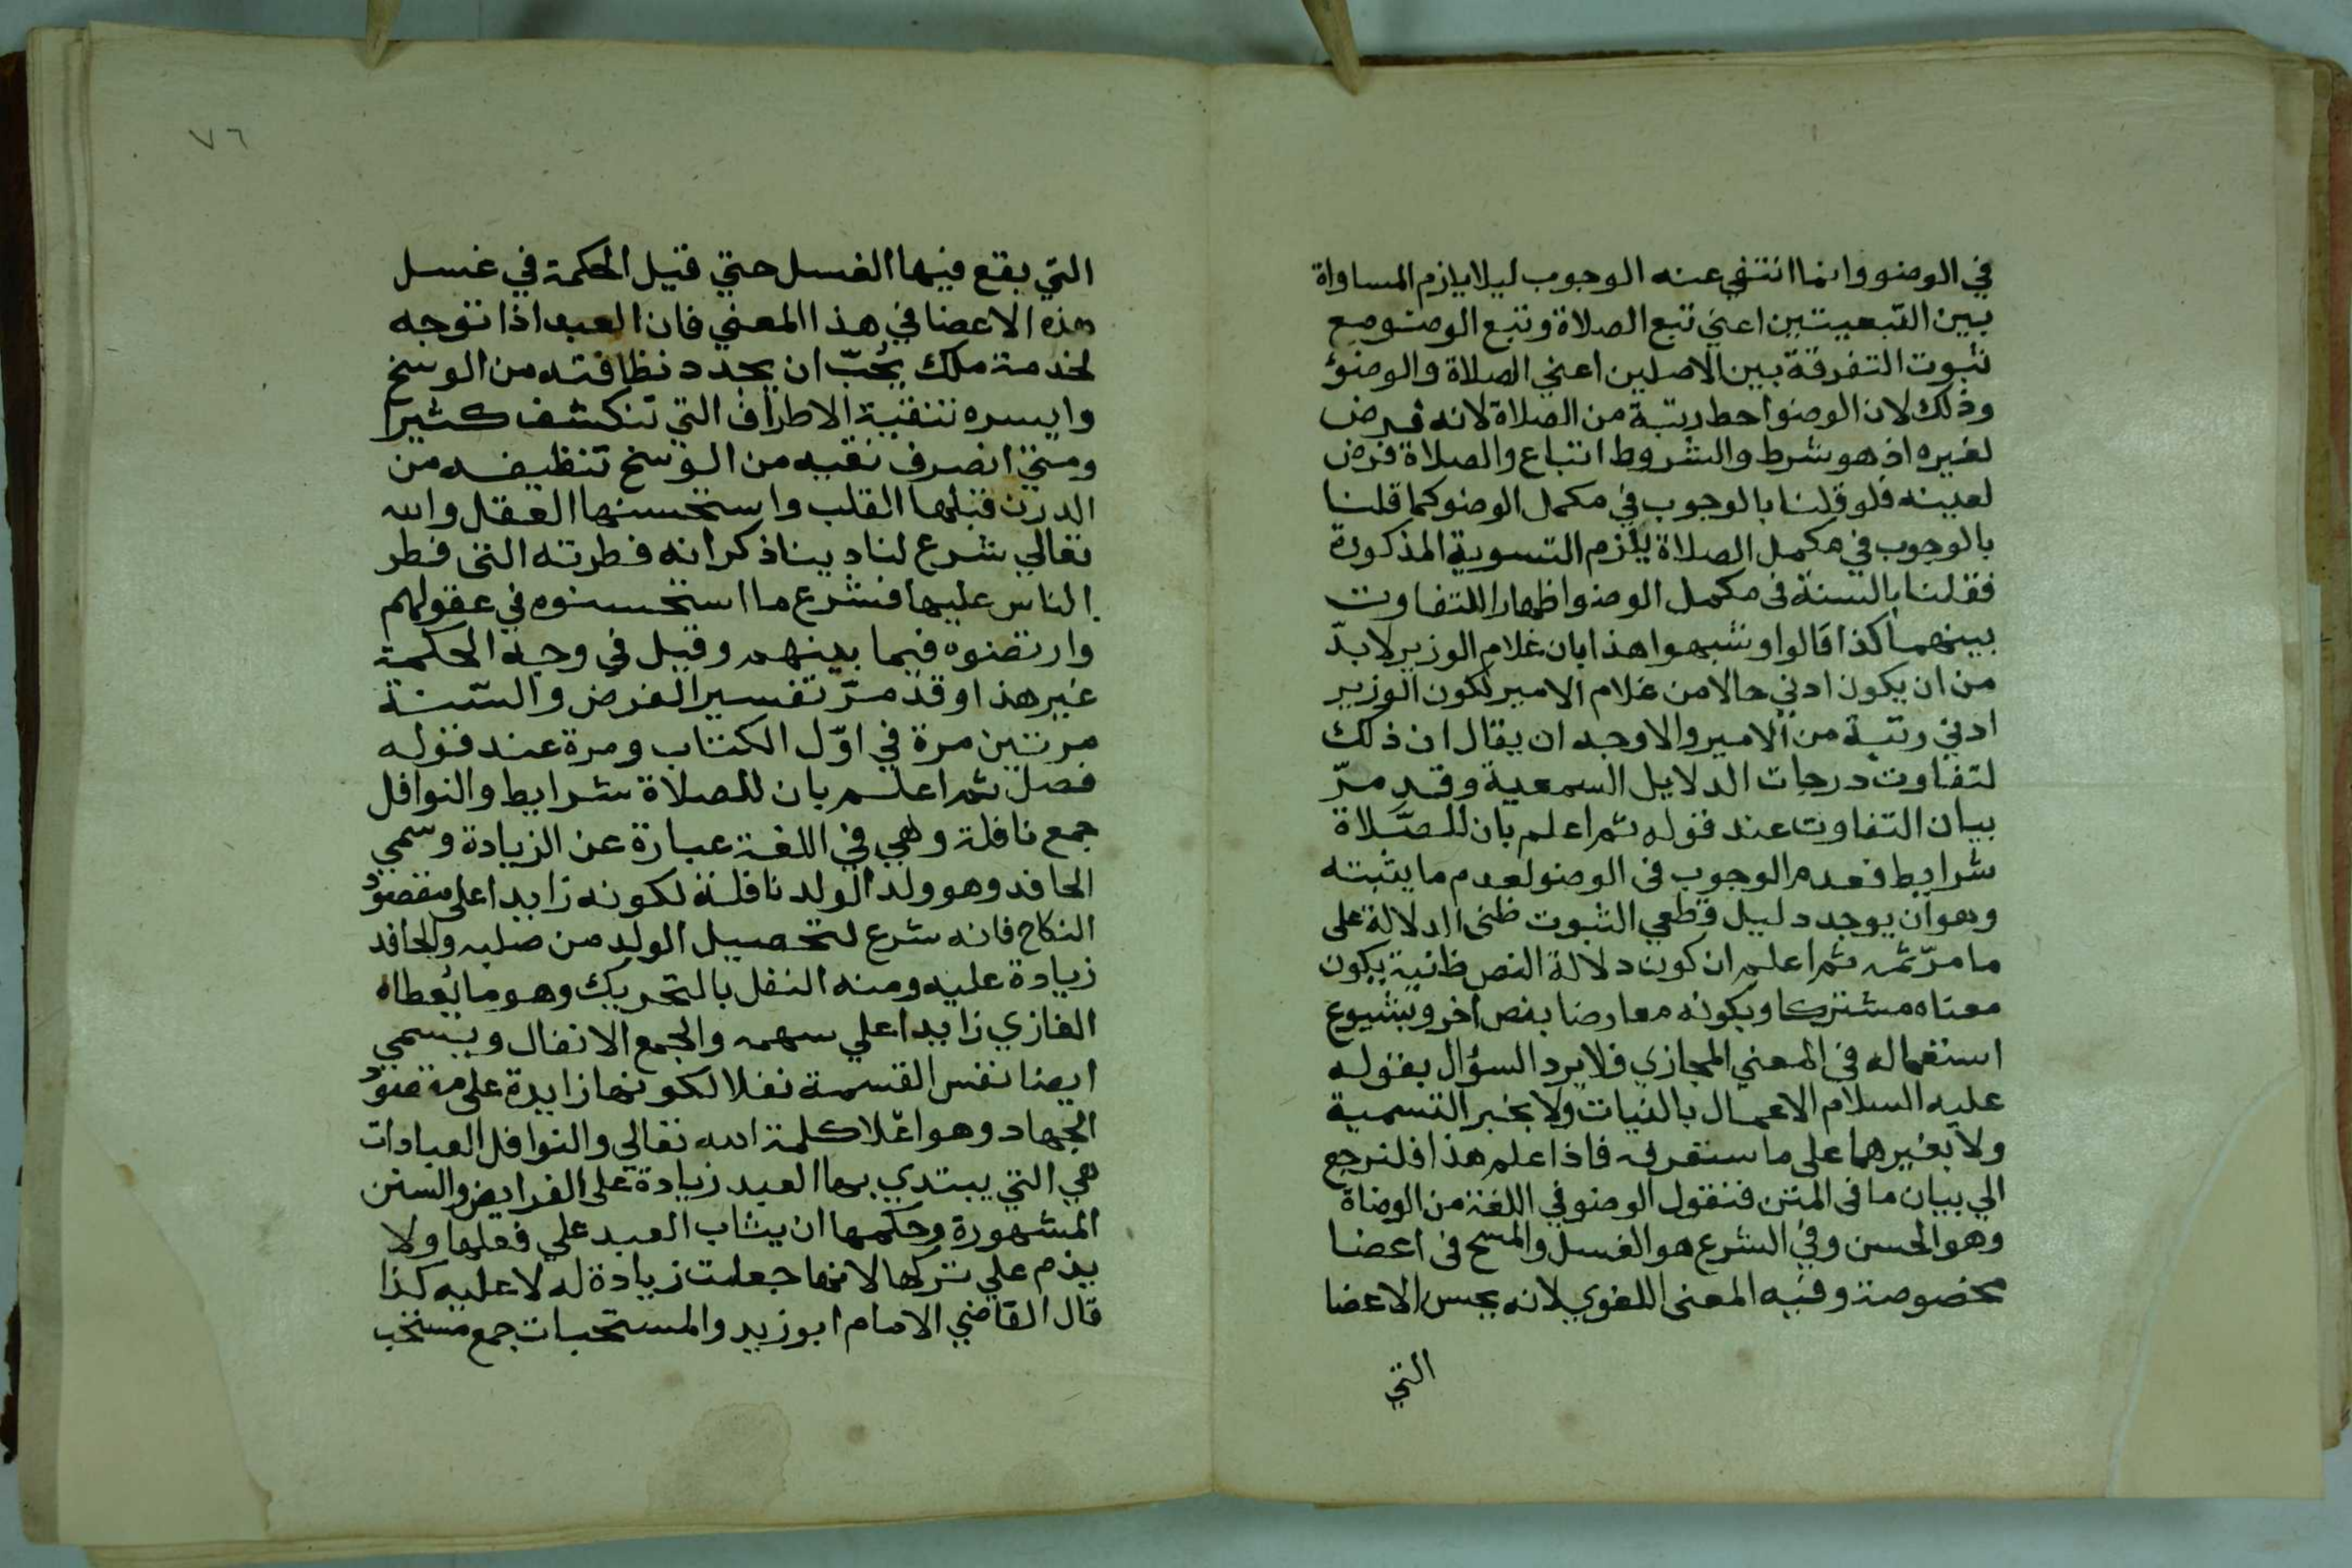 في الوضو وانما انتفي عنه الوجوب ليلا يلزم المساواة
بين التبعيتين اعني تبع الصلاة وتبع الوضو مع
ثبوت التفرقة بين الاصلين اعني الصلاة والوضوء
وذلك لان الوضو احط رتبة من الصلاة لانه فرض
لغيره اذ هو شرط والشروط اتباع والصلاة فرض
لعينه فلو قلنا بالوجوب في مكمل الوضو كما قلنا
بالوجوب في مكمل الصلاة يلزم التسوية المذكورة
فقلنا بالسنة في مكمل الوضو اظهارا للتفاوت
بينهما كذا قالوا وشبهوا هذا بان غلام الوزير لا بدّ
من ان يكون ادني حالا من غلام الامير لكون الوزير
ادني رتبة من الامير والاوجه ان يقال ان ذلك
لتفاوت درجات الدلايل السمعية وقد مرّ
بيان التفاوت عند قوله ثم اعلم بان للصّلاة
شرايط فعدم الوجوب في الوضو لعدم ما يثبته
وهو ان يوجد دليل قطعي الثبوت ظني الدلالة على
ما مرّ ثمه ثم اعلم ان كون دلالة النص ظانية بكون
معناه مشتركا وبكونه معارضا بنص اخر وبشيوع
استعماله في المعني المجازي فلا يرد السؤال بقوله
عليه السلام الاعمال بالنيات ولا بخبر التسمية
ولا بغيرهما على ما ستعرفه فاذا علم هذا فلنرجع
الي بيان ما في المتن فنقول الوضو في اللغة من الوضاة
وهو الحسن وفي الشرع هو الغسل والمسح في اعضا
مخصوصة وفيه المعنى اللغوي لانه يحسن الاعضا
التي
٧٦
التي يقع فيها الغسل حتي قيل الحكمة في غسل
هذه الاعضا في هذا المعني فان العبد اذا توجه
لخدمة ملك يُحبّ ان يجدد نظافته من الوسخ
وايسره تنقية الاطراف التي تنكشف كثيرا
ومتي انصرف نقيه من الوسخ تنظيفه من
الدرن قبلها القلب واستحسنها العقل والله
تعالي شرع لنا دينا ذكر انه فطرته التي فطر
الناس عليها فشرع ما استحسنوه في عقولهم
وارتضوه فيما بينهم وقيل في وجه الحكمة
غير هذا وقد مرّ تفسير الفرض والسّنة
مرتين مرة في اوّل الكتاب ومرة عند قوله
فصل ثم اعلم بان للصلاة شرايط والنوافل
جمع نافلة وهي في اللغة عبارة عن الزيادة وسمي
الحافد وهو ولد الولد نافلة لكونه زايدا على مقصود
النكاح فانه شرع لتحصيل الولد من صلبه والحافد
زيادة عليه ومنه النفل بالتحريك وهو ما يُعطاه
الغازي زايدا علي سهمه والجمع الانفال ويسمي
ايضا نفس القسمة نفلا لكونها زايدة على مقصود
الجهاد وهو اعلا كلمة الله تعالي والنوافل العبادات
هي التي يبتدي بها العبد زيادة على الفرايض والسنن
المشهورة وحكمها ان يثاب العبد علي فعلها ولا
يذم علي تركها لانها جعلت زيادة له لا عليه كذا
قال القاضي الامام ابو زيد والمستحبات جمع مستحب